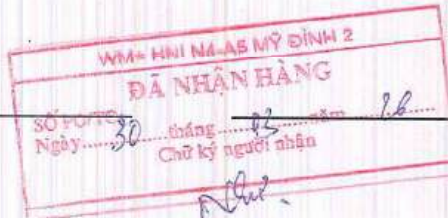 WM+ HNI N4-A5 MỸ ĐÌNH 2
ĐÃ NHẬN HÀNG
SỐ PO/TO
Ngày 30 tháng 03 năm
Chữ ký người nhận